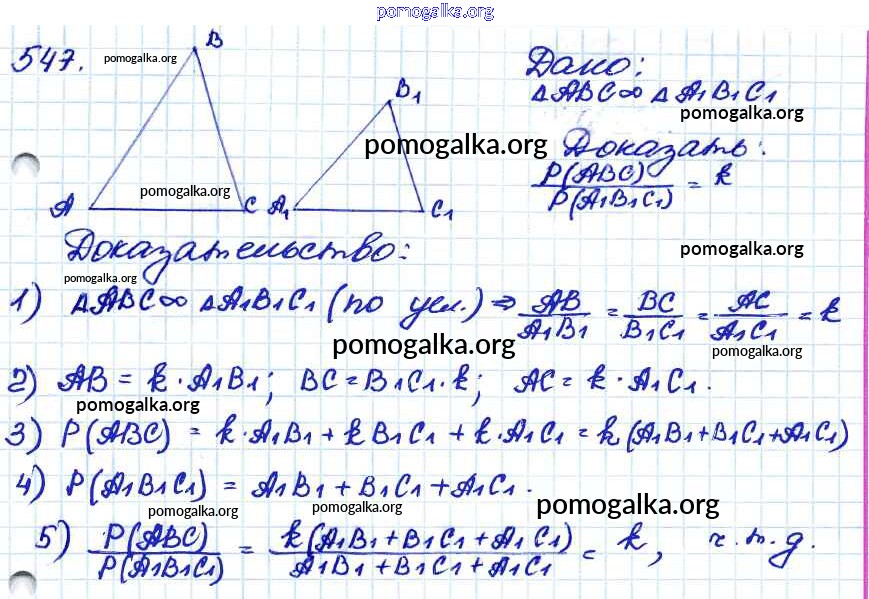 pomogalka.org
547.
pomogalka.org
B
A
C
pomogalka.org
B1
A1
C1
Дано:
△ABC∞ △A1B1C1
pomogalka.org
pomogalka.org
Доказать:
P(ABC)/P(A1B1C1) = k
Доказательство:
pomogalka.org
pomogalka.org
1) △ABC∞ △A1B1C1 (по усл.) ⇒ AB/A1B1 = BC/B1C1 = AC/A1C1 = k
pomogalka.org
pomogalka.org
2) AB = k · A1B1; BC = B1C1 · k; AC = k · A1C1.
pomogalka.org
3) P(ABC) = k · A1B1 + k B1C1 + k · A1C1 = k (A1B1+B1C1+A1C1)
4) P(A1B1C1) = A1B1 + B1C1 + A1C1.
pomogalka.org
pomogalka.org
pomogalka.org
5) P(ABC)/P(A1B1C1) = k(A1B1 + B1C1 + A1C1)/A1B1 + B1C1 + A1C1 = k, ч.т.д.